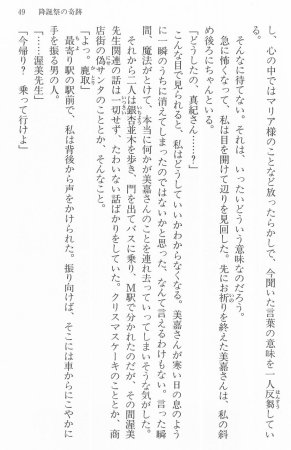 49　降誕祭の奇跡
し、心の中ではマリア様のことなど放ったらかしで、今聞いた言葉の意味を一人反芻してい
た。
そんなに待てない。それは、いったいどういう意味なのだろう。
急に怖くなって、私は目を開けて辺りを見回した。先にお祈りを終えた美嘉さんは、私の斜
め後ろにちゃんといる。
「どうしたの、真紀さん……?」
こんな目で見られると、私はどうしていいかわからなくなる。美嘉さんが寒い日の息のよう
に一瞬のうちに消えてしまったのではないかと思った、なんて言えるわけもない。言った瞬
間、魔法がとけて、本当に何かが美嘉さんのことを連れ去っていってしまいそうな気がした。
それから二人は銀杏並木を歩き、門を出てバスに乗り、M駅で分かれたのだが、その間渥美
先生関連の話は一切せず、たわいない話ばかりをしていた。クリスマスケーキのこととか、商
店街の偽サンタのこととか、そんなこと。
「よっ。鹿取」
最寄り駅の駅前で、私は背後から声をかけられた。振り向けば、そこには車からにこやかに
手を振る男の人。
「……渥美先生」
「今帰り?　乗って行けよ」